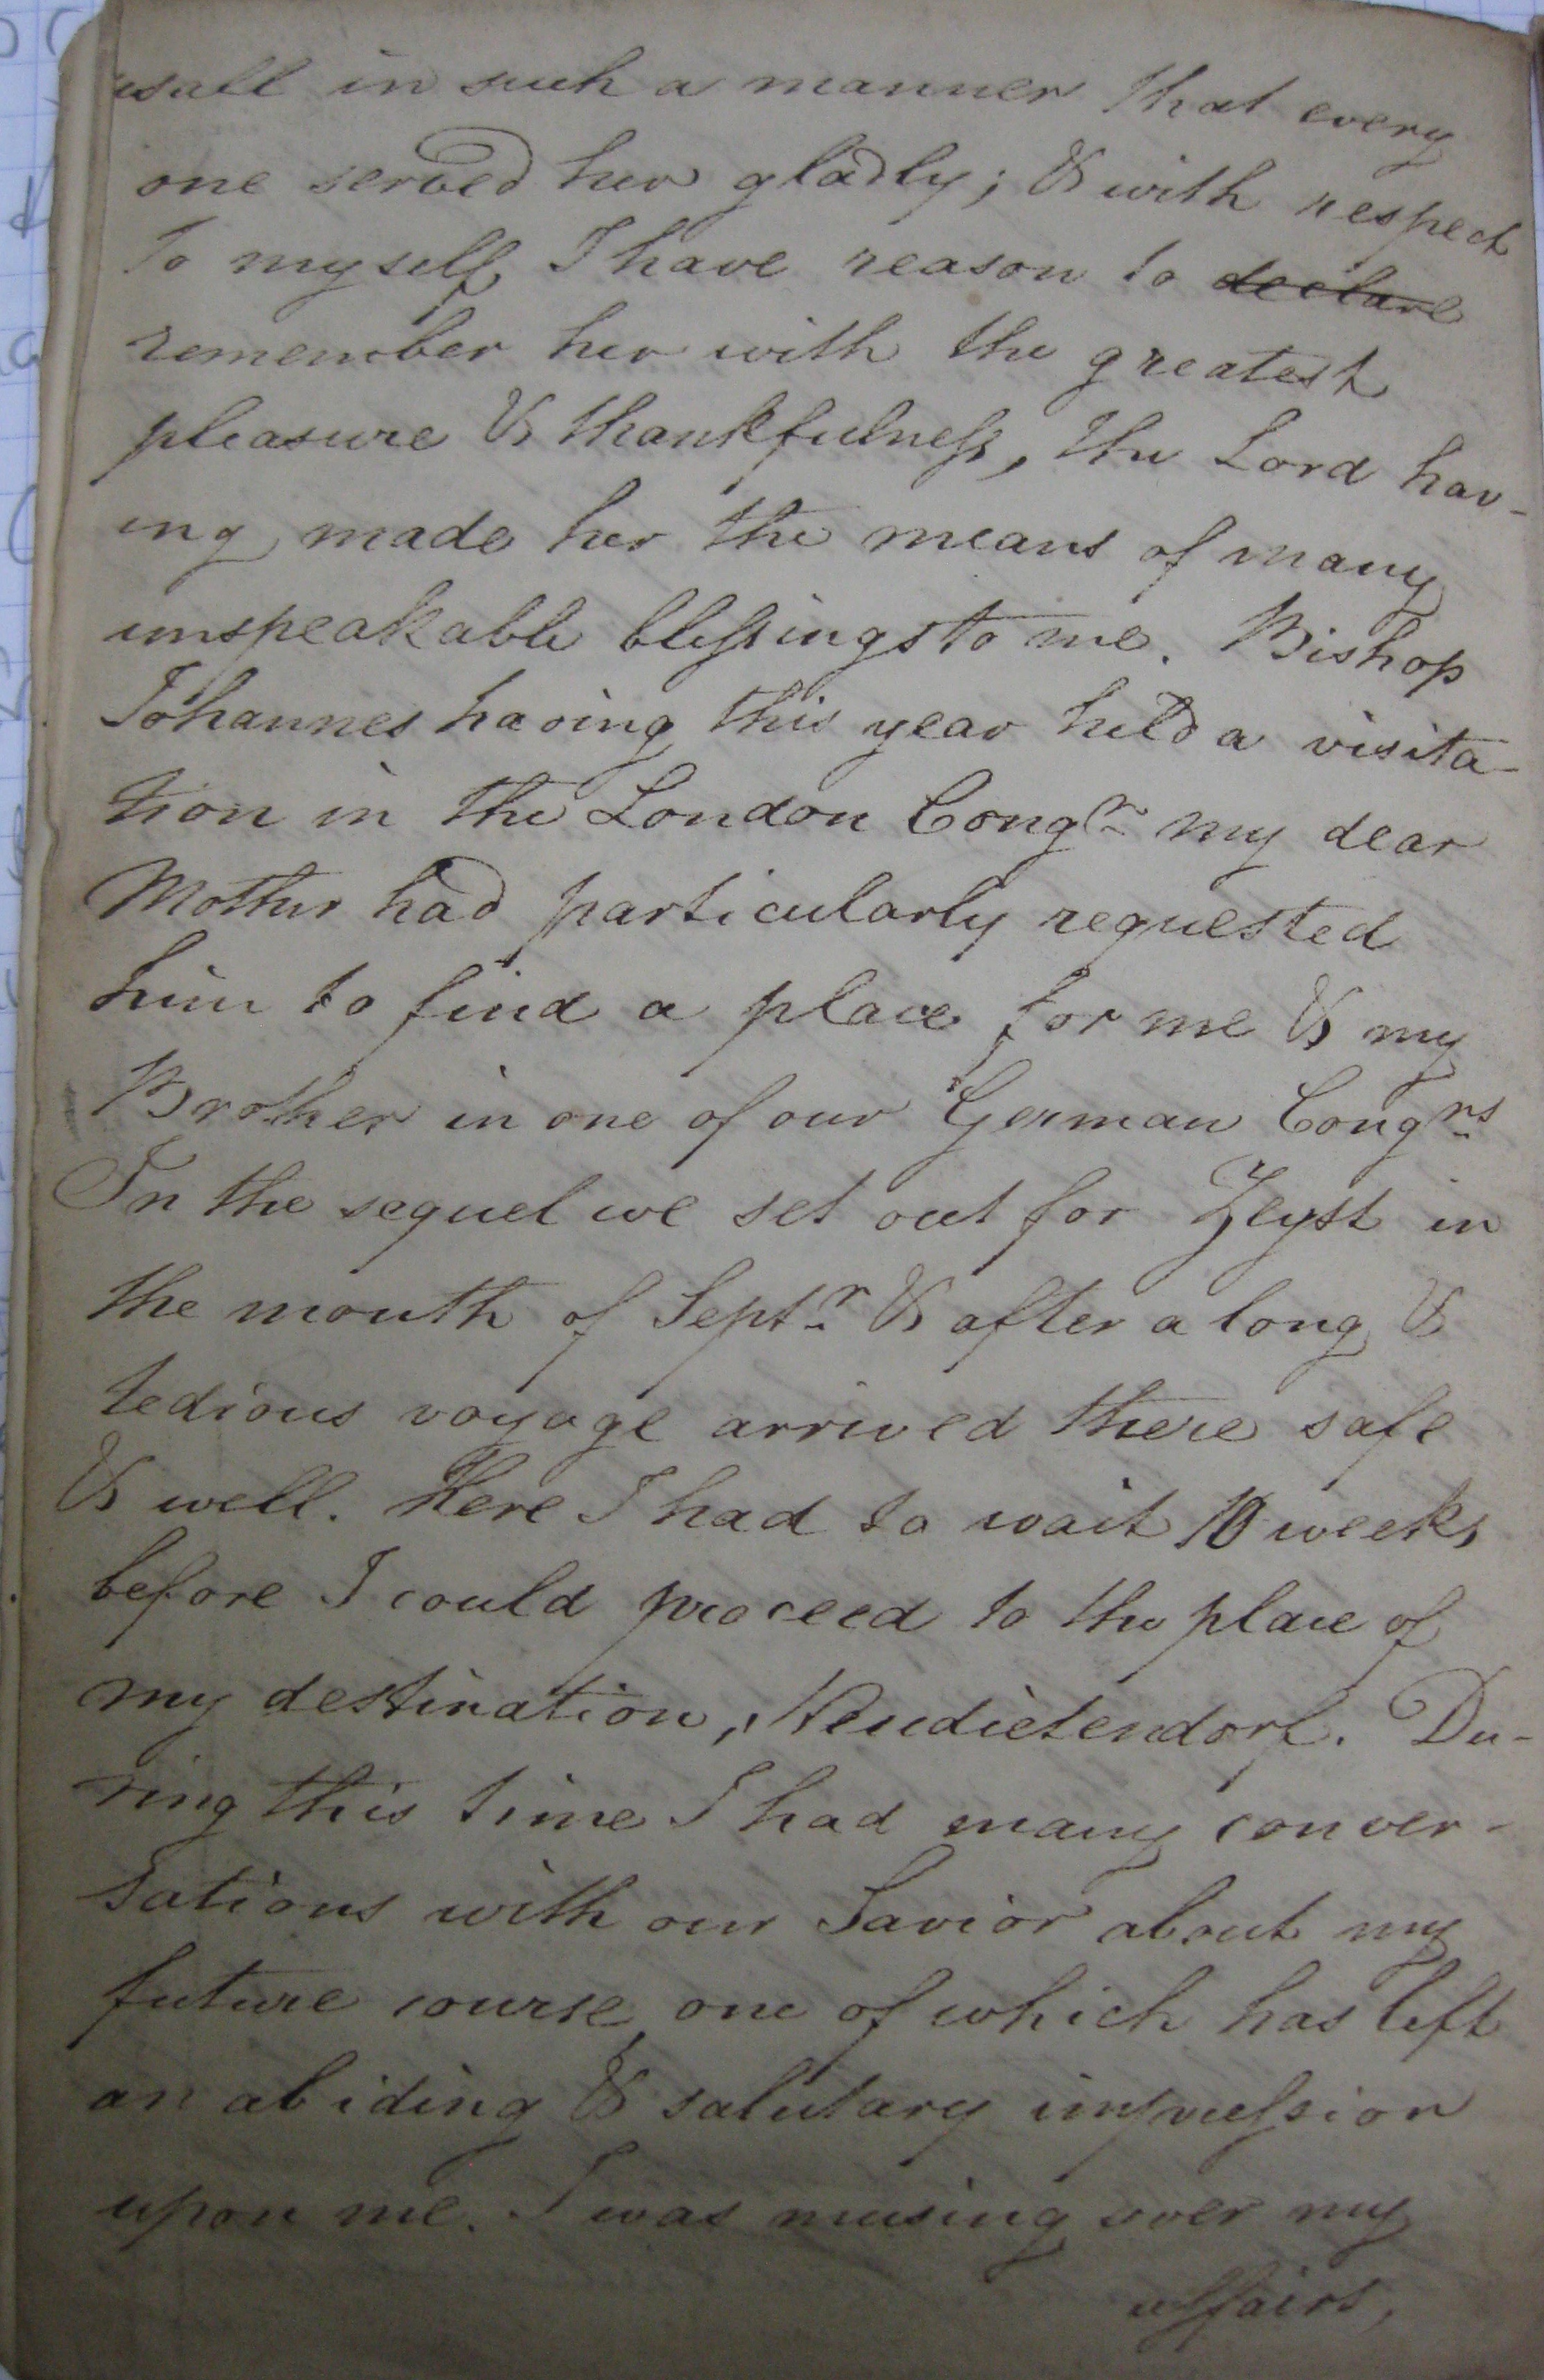 us all in such a manner that every
one served her gladly; & with respect
to myself I have reason to declare
remember her with the greatest
pleasure & thankfulness, the Lord hav-
ing made her the means of many
unspeakable blessings to me. Bishop
Johannes having this year held a visita-
tion in the London Congn my dear
Mother had particularly requested
him to find a place for me & my
Brother in one of our German Congns
In the sequel we set out for Zeyst in
the month of Septr & after a long &
tedious voyage arrived there safe
& well. Here I had to wait 10 weeks
before I could proceed to the place of
my destination, Neudietendorf. Du-
ring this time I had many conver-
sations with our Savior about my
future course, one of which has left
an abiding & salutary impression
upon me. I was musing over my
affairs,